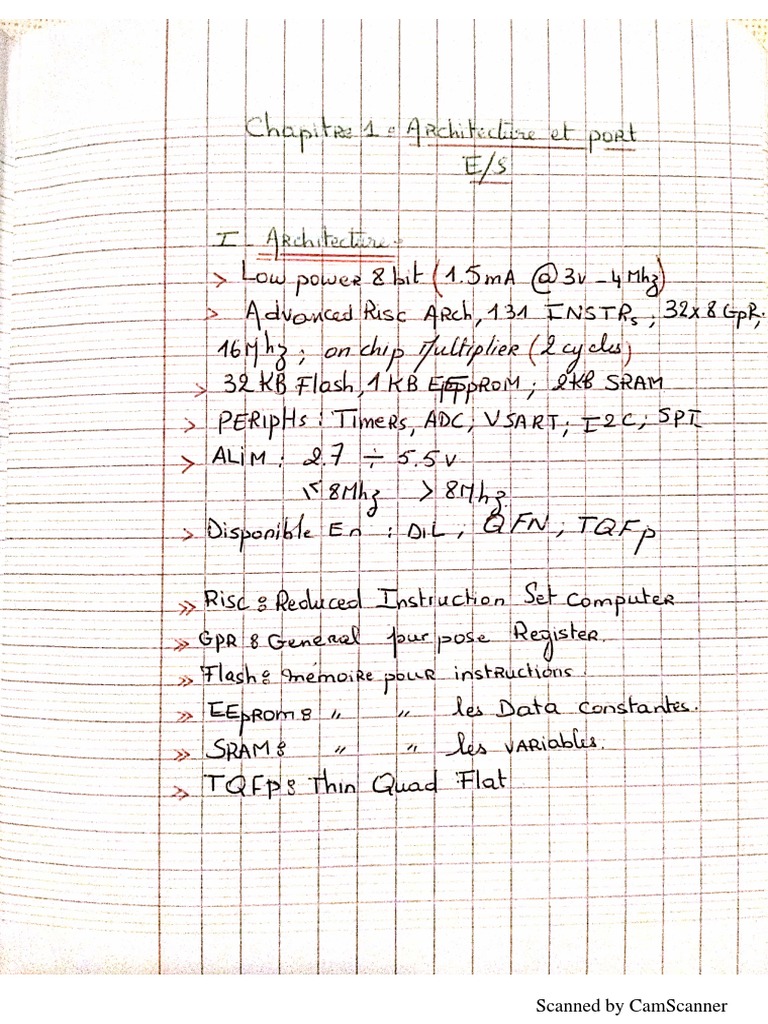 Chapitre 1 : Architecture et port
E/S
I - Architecture.
> Low power 8 bit (1.5mA @3v - 4Mhz)
> Advanced Risc Arch, 131 INSTRs, 32x8 GpR,
16Mhz; on chip Multiplier (2 cycles)
> 32 KB Flash, 1 KB EEpROM; 2KB SRAM
> PERIpHs : Timers, ADC, VSART; I2C; SPI
> ALIM : 2.7 ÷ 5.5v
< 8Mhz > 8Mhz
> Disponible En : DIL, QFN, TQFp
>> Risc : Reduced Instruction Set Computer
>> GpR : General purpose Register.
>> Flash : mémoire pour instructions.
>> EEpROM : " " les Data constantes.
>> SRAM : " " les VARIAbles.
>> TQFp : Thin Quad Flat
Scanned by CamScanner